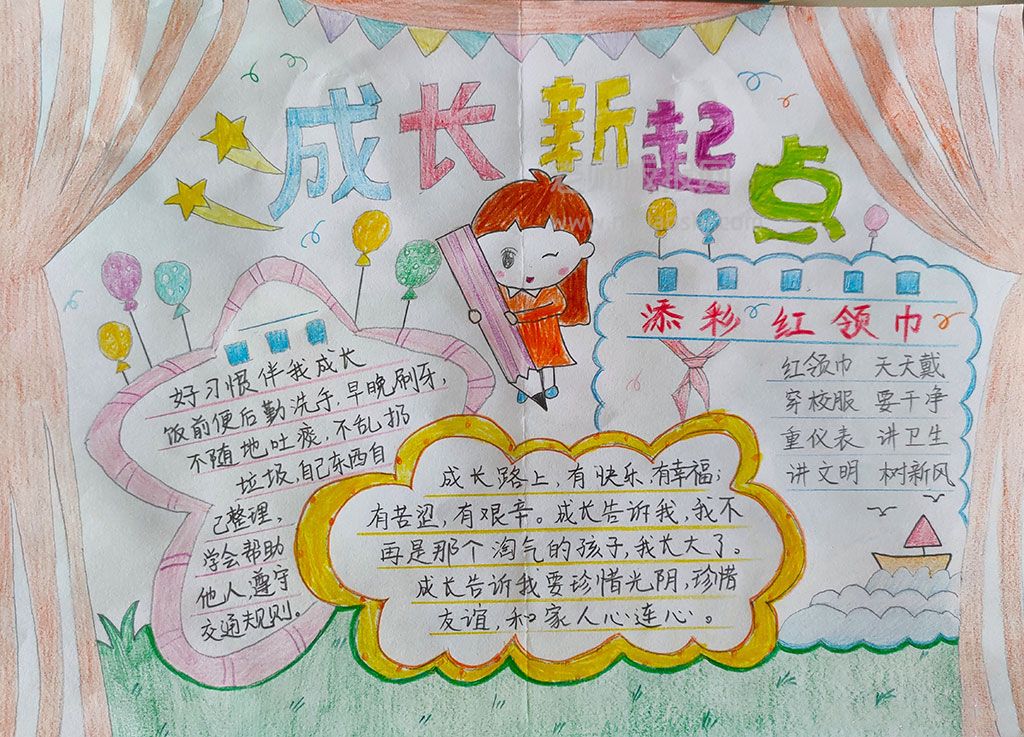 成长新起点
好习惯伴我成长
饭前便后勤洗手,早晚刷牙,
不随地吐痰,不乱扔
垃圾,自己东西自
己整理,
学会帮助
他人,遵守
交通规则。
成长路上,有快乐,有幸福;
有苦涩,有艰辛。成长告诉我,我不
再是那个淘气的孩子,我长大了。
成长告诉我要珍惜光阴,珍惜
友谊,和家人心连心。
添彩红领巾
红领巾 天天戴
穿校服 要干净
重仪表 讲卫生
讲文明 树新风